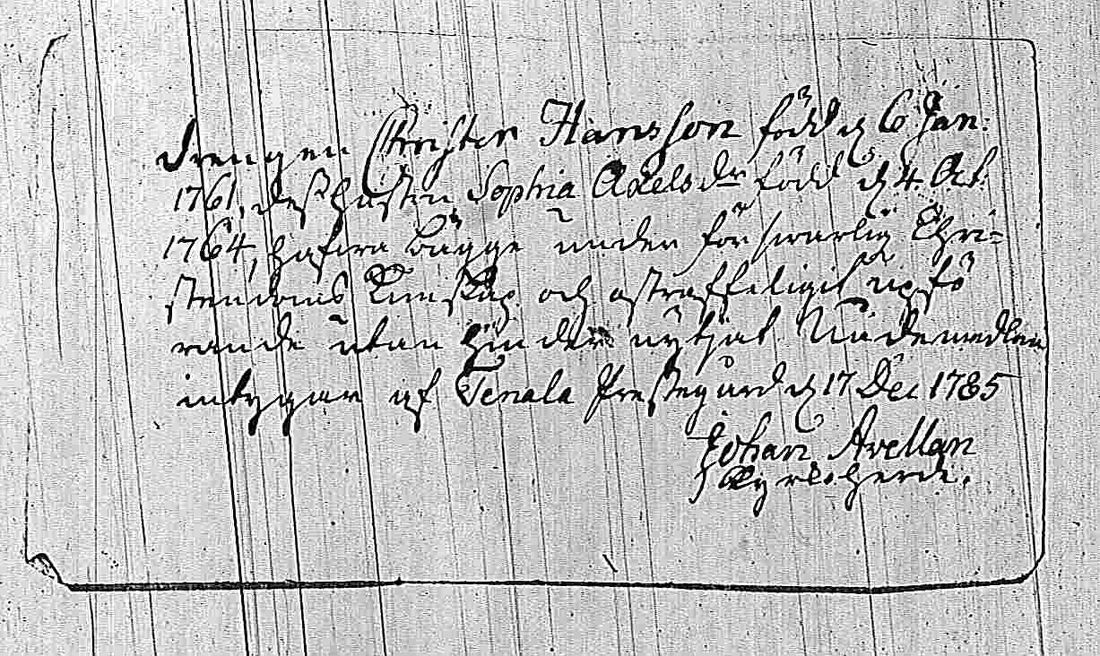 Drengen Christer Hansson född d. 6 Jan:
1761, dess hustru Sophia Axelsdr född d. 4. Oct.
1764, hafva bägge under försvarlig Chri-
stendoms Kunskap och ostraffeligit upfö
rande utan hinder nytjat Nådemedlen
intygar af Tenala Prestegård d. 17 Dec 1785
Johan Avellan
Kyrkoherde.